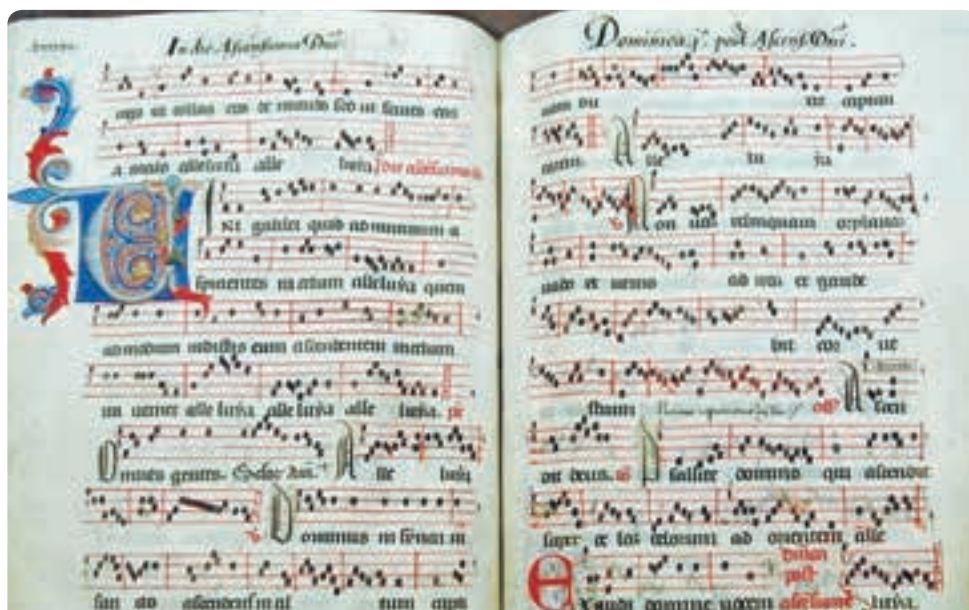 In die Ascensionis Dni.
ut tollas eos de mundo sed ut serues eos
a malo alleluia alle luia
Viri galilei quid admiramini a
spicientes in celum alleluia quem
admodum uidistis eum ascendentem in celum
ita ueniet alleluia alleluia alle luia. ps
Omnes gentes. Alle luia
Dominus in synai in
san cto ascendens in al tum capti
Dominica j. post Ascens. Dni.
du xit captiui
tatem. Alle lu ia
Non uos relinquam orphanos
uado et uenio ad uos et gaude
bit cor ue
strum off Ascen
dit deus. co Psallite domino qui ascendit
super celos celorum ad orientem alle
Exaudi domine uocem luia.